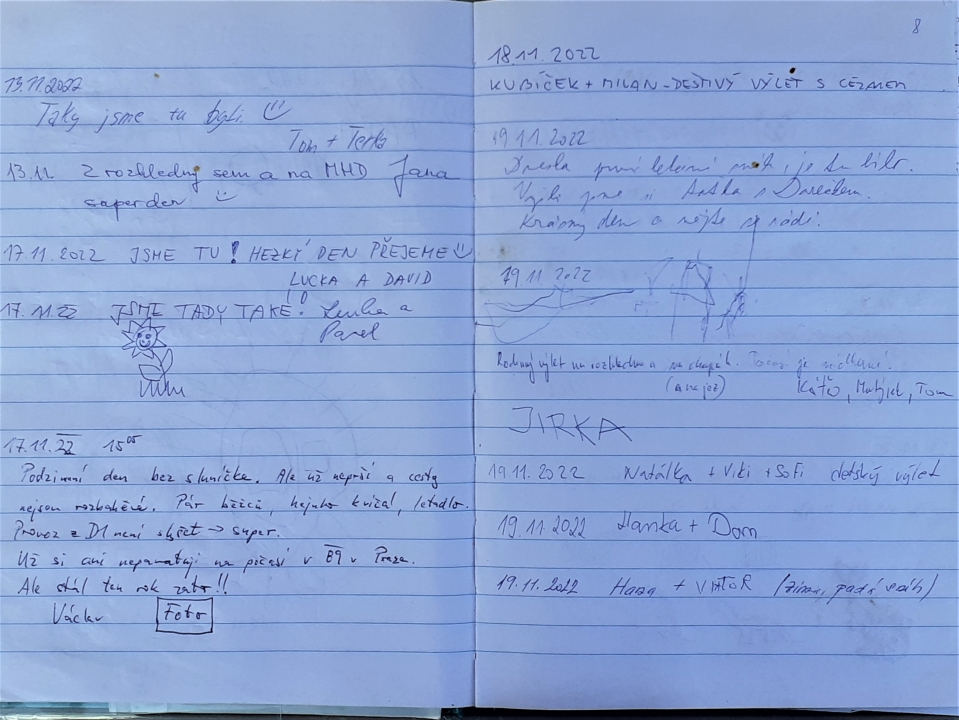 13.11.2022
Taky jsme tu byli. :)
Tom + Terka
13.11. Z rozhledny sem a na MHD Jana
super den :)
17.11.2022 JSME TU! HEZKÝ DEN PŘEJEME :)
LUCKA A DAVID
17.11.22 JSME TADY TAKÉ! Lenka a
Pavel
17.11.22 15⁰⁵
Podzimní den bez sluníčka. Ale už neprší a cesty
nejsou rozbahněné. Pár běžců, hejno kvíčal, letadlo.
Provoz z D1 není slyšet → super.
Už si ani nepamatuji na počasí v 89 v Praze.
Ale stál ten rok zato!!
Václav Foto
8
18.11.2022
KUBÍČEK + MILAN - DEŠTIVÝ VÝLET S
19.11.2022
Dneska první letošní sníh, je tu bílo.
jsme si
Krásný den a mějte se rádi.
19 11 2022
Rodinný výlet na rozhlednu a na
Káťa, Matýsek, Tom
JIRKA
19.11.2022 Natálka + Viki + Sofi dětský výlet
19.11.2022 Hanka + Dom
19.11.2022 Hana + VIKTOR (zima, padá sníh)